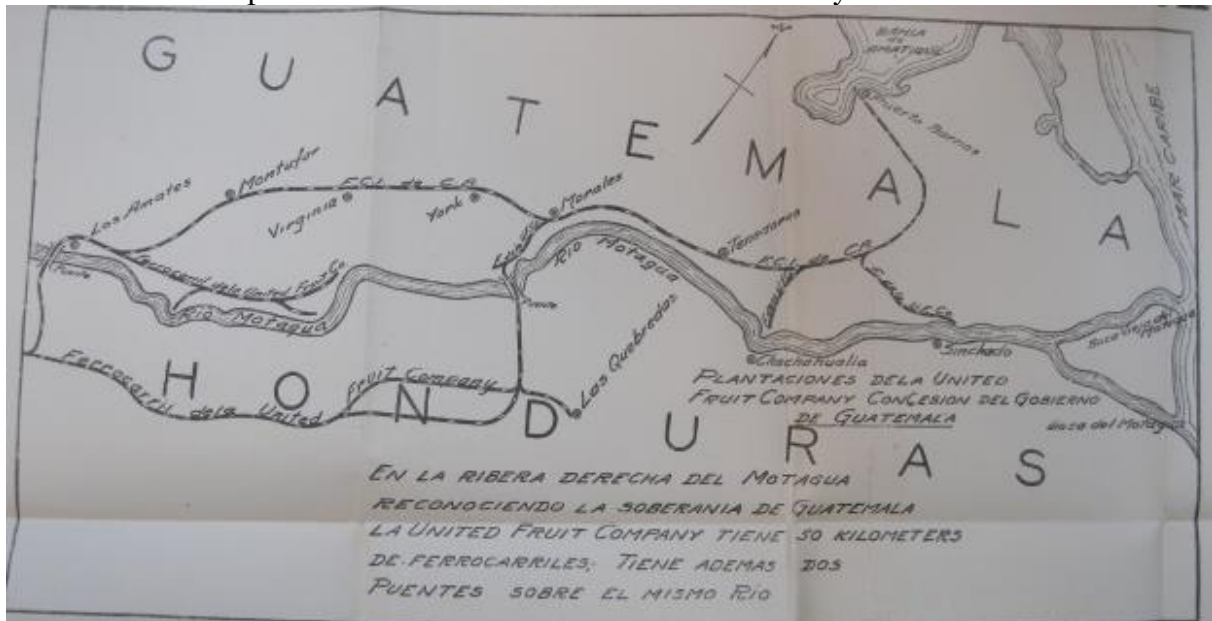 GUATEMALA
BAHIA
DE
AMATIQUE
Puerto Barrios
MAR CARIBE
Montufar
F.C.I. de C.A.
Los Amates
Virginia
York
Morales
Tenedores
F.C.I. de C.A.
Puente
Ferrocarril de la United Fruit Co
Rio Motagua
Rio Motagua
Puente
Las Quebradas
Chachahualia
Sinchado
Boca del Motagua
Ferrocarril de la United Fruit Company
HONDURAS
PLANTACIONES DE LA UNITED
FRUIT COMPANY CONCESION DEL GOBIERNO
DE GUATEMALA
EN LA RIBERA DERECHA DEL MOTAGUA
RECONOCIENDO LA SOBERANIA DE GUATEMALA
LA UNITED FRUIT COMPANY TIENE 50 KILOMETERS
DE FERROCARRILES; TIENE ADEMAS DOS
PUENTES SOBRE EL MISMO RIO